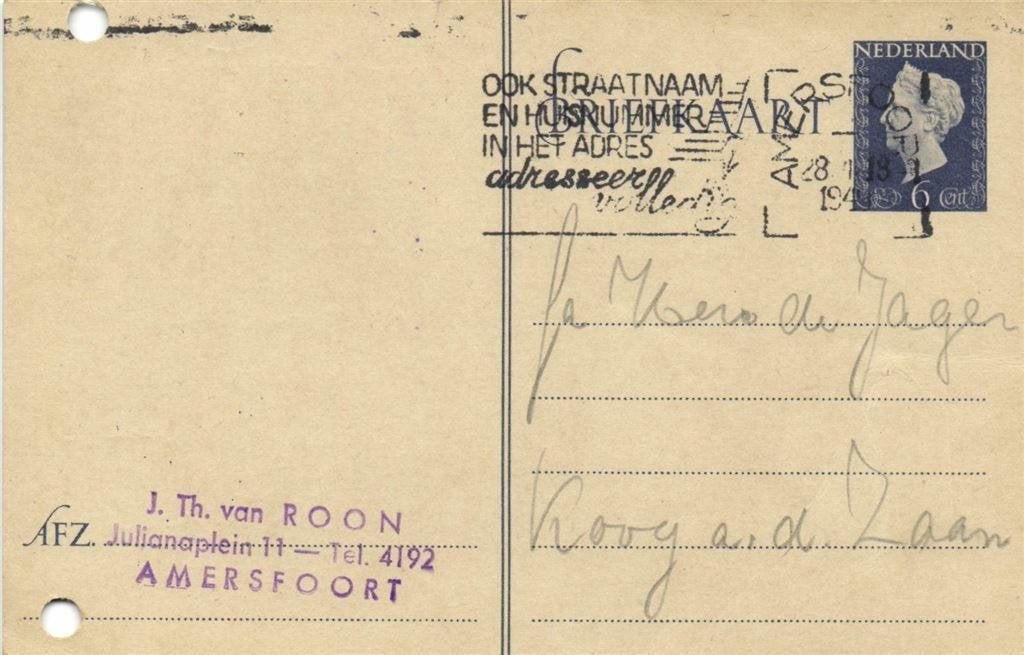 NEDERLAND
OOK STRAATNAAM
EN HUISNUMMER
IN HET ADRES
adresseer
BRIEFKAART
AMERSFOORT
28
18
194
6 Cent
fa de Jager
Koog a.d. Zaan
J. Th. van ROON
AFZ. Julianaplein 11 — Tel. 4192
AMERSFOORT